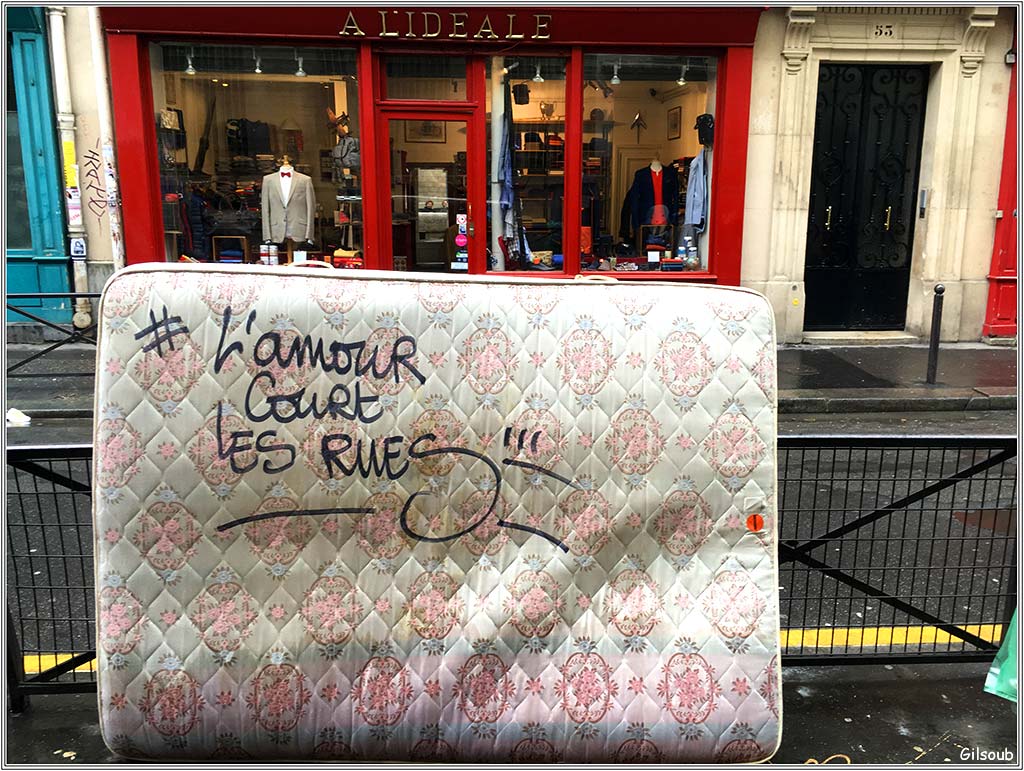 A L'IDEALE
53
# L'amour
Court
LES RUES !!!
Gilsoub